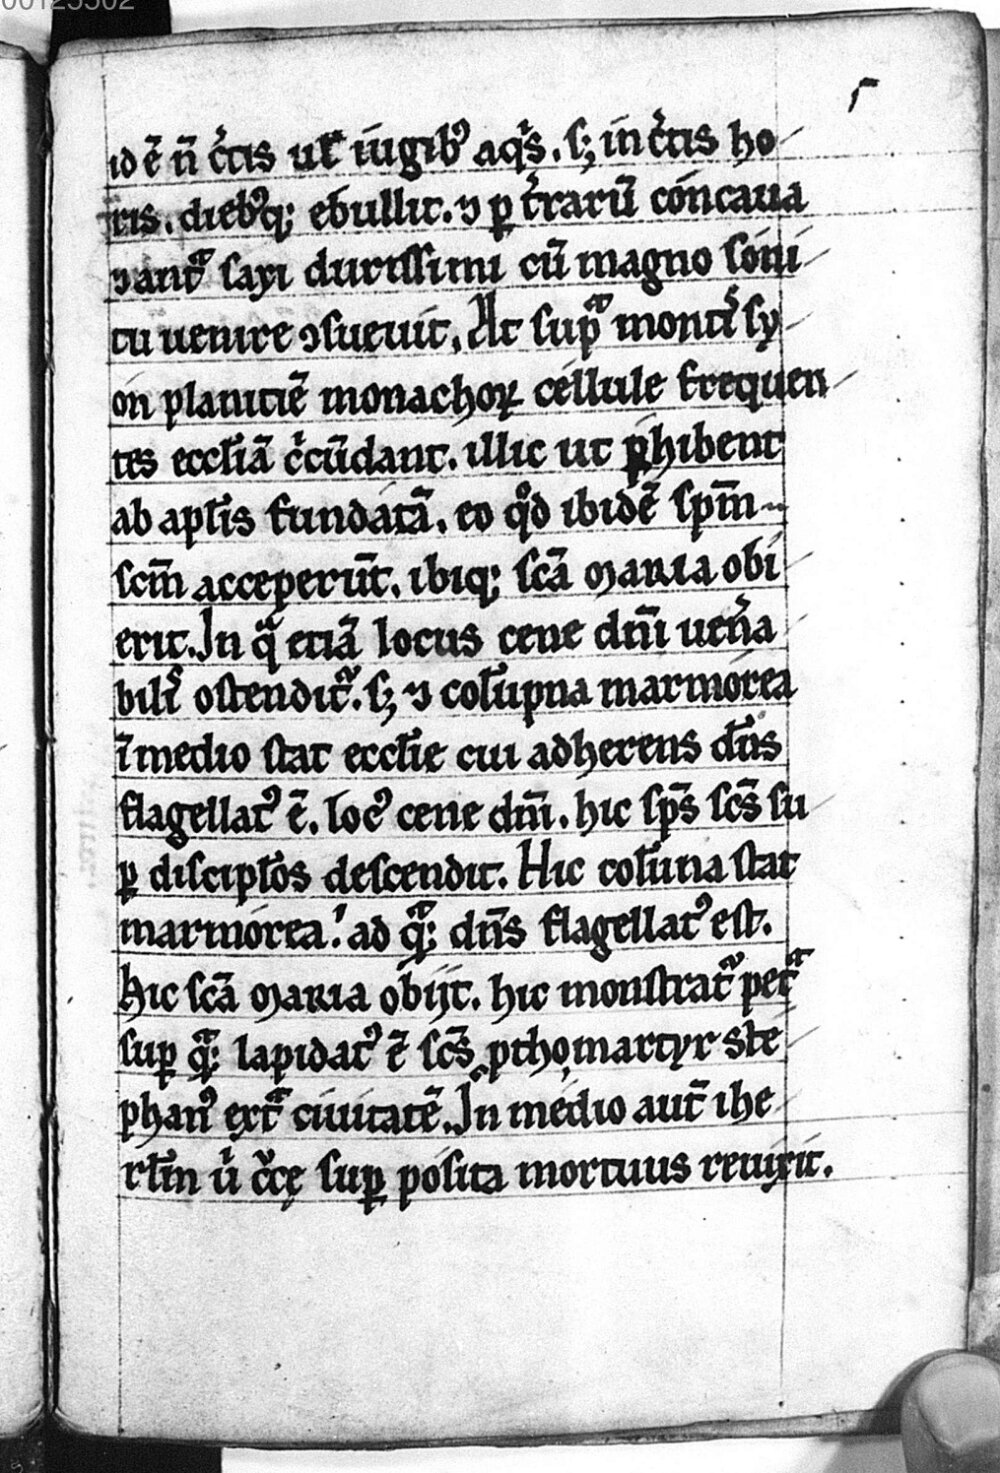 00125502
5
id ē n̄ c̓tis uł iugib⁹ aqͥs. s; in c̓tis ho
ris. dieb⁹q; ebullit. ⁊ ꝑ t̓rarū concaua
⁊ antͣ saxi durissimi cū magno soni
tu uenire ꝯsueuit. At supͣ montıs̄ sy
on planitiē monachoꝝ cellule frequen
tes eccłiā c̓cūdant. illic ut ꝑhibent
ab apłis fundatā. eo qͦd ibidē sp̄m
sc̄m acceperūt. ibiq; sc̄a maria obi
erit. In qͣ etiā locus cene dn̄i uen̓a
bilıs̄ ostendit᷑. s; ⁊ columpna marmorea
ī medio stat eccłie cui adherens dn̄s
flagellat⁹ ē. loc⁹ cene dn̄i. hic sp̄s sc̄s su
ꝑ discipłos descendit. Hic coluna stat
marmorea. ad qͣ; dn̄s flagellat⁹ est.
Hic sc̄a maria obijt. hic monstrat᷑ petͣ
suꝑ qͣ; lapidat⁹ ē sc̄s ꝓtho martyr ste
phan⁹ extͣ ciuitatē. In medio aut̄ ihe
rłm u̓ c̓cę suꝑ posita mortuus reuixit.